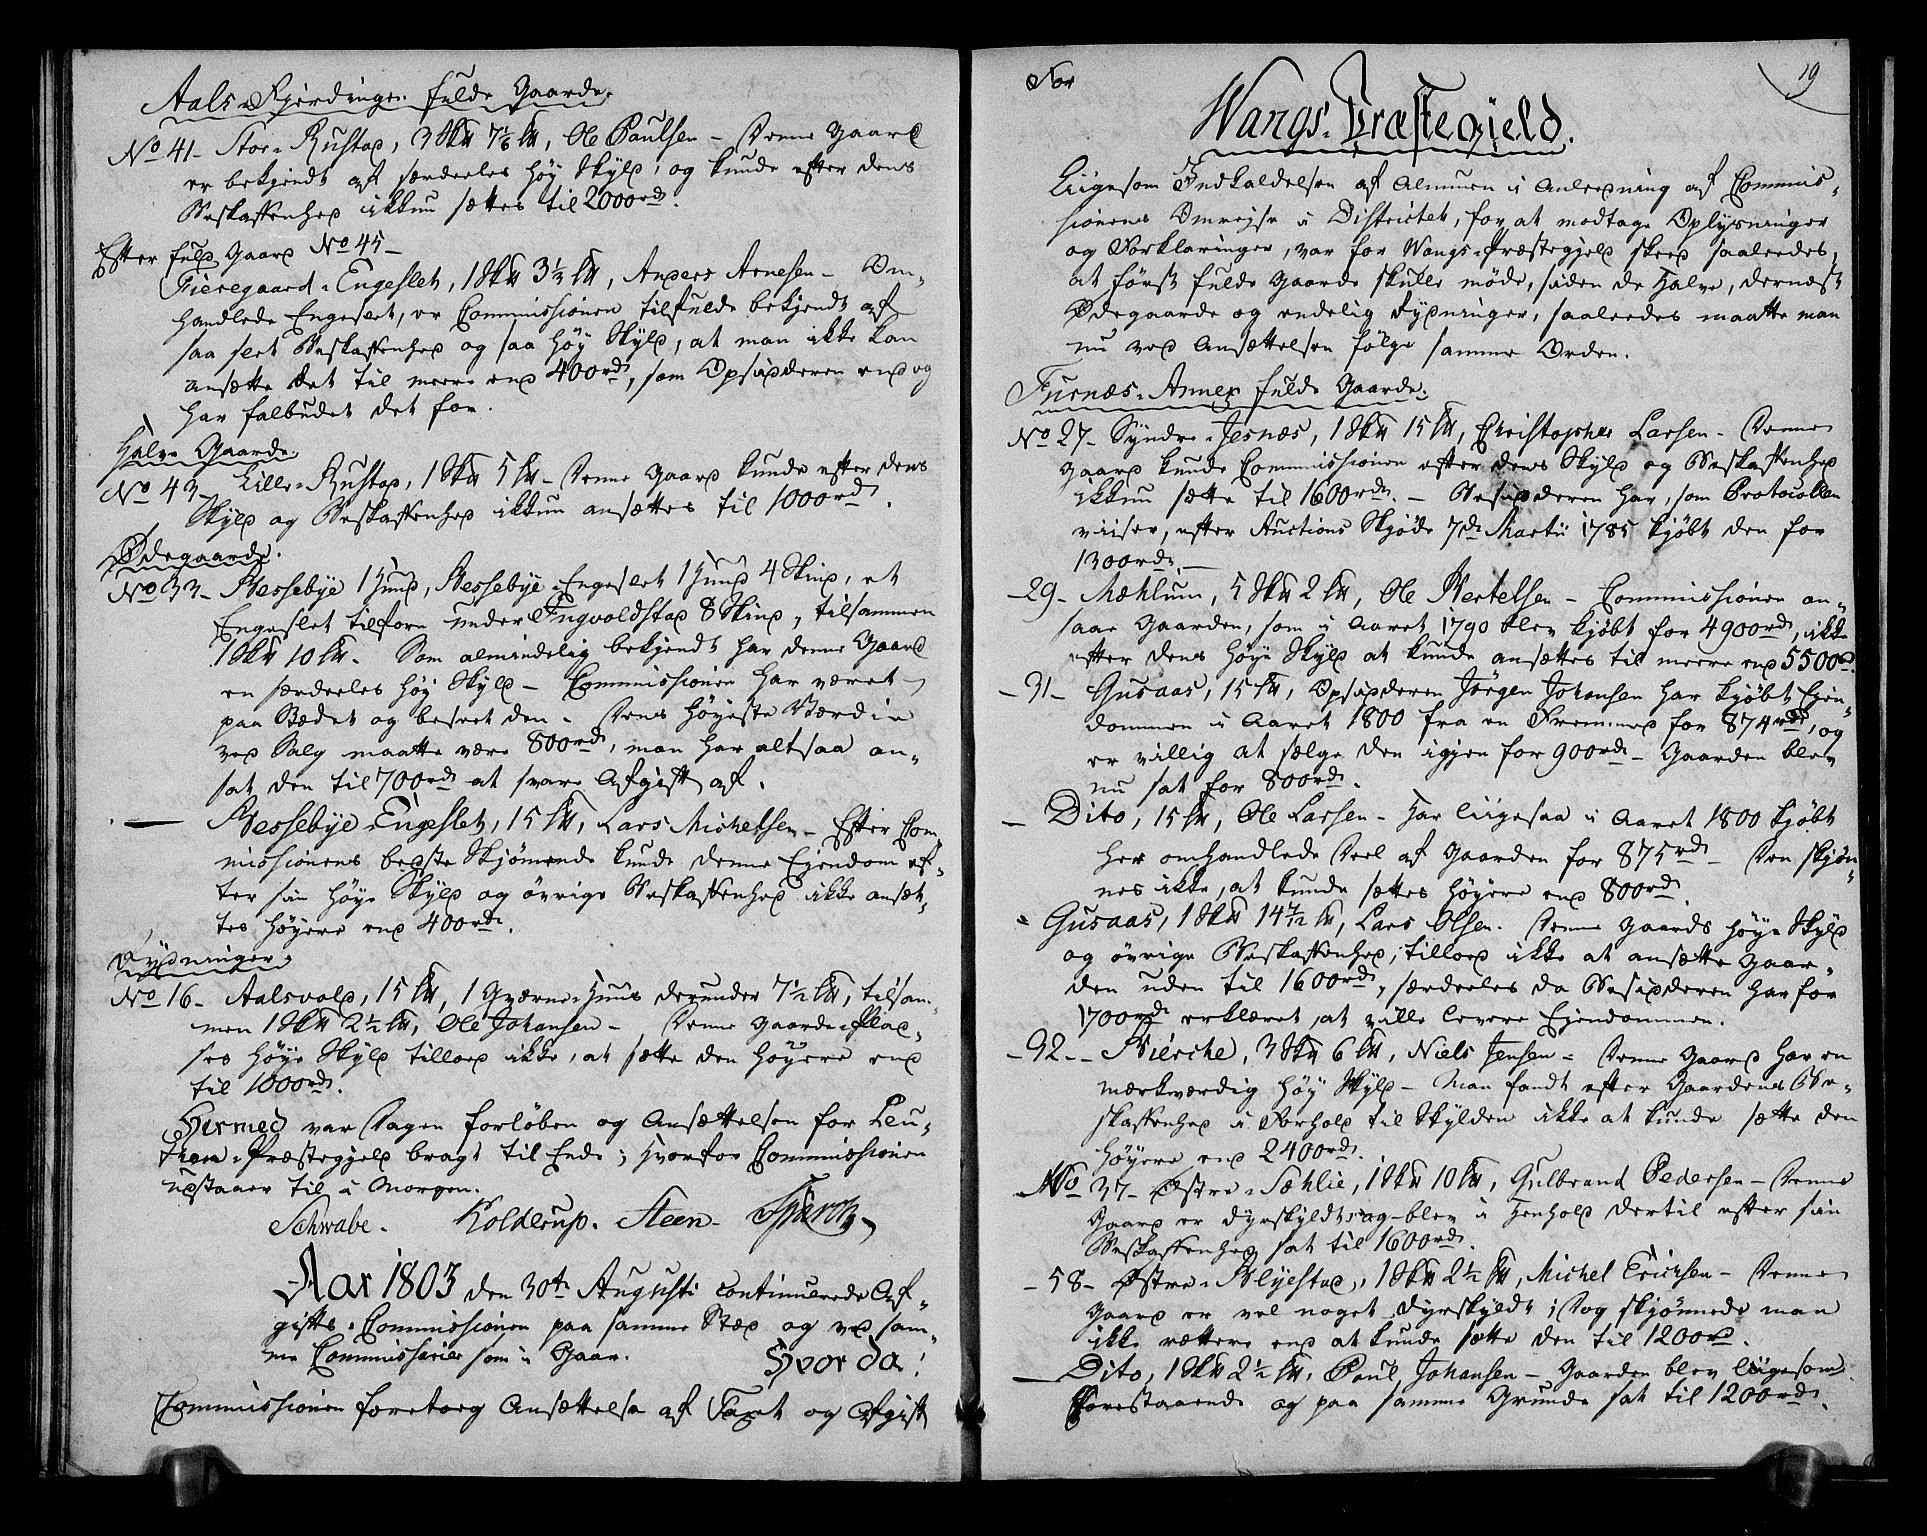 Aals-Fjerdingen fulde Gaarde.
No 41- Stor-Rustad, 3 Sk℔ 7½ ℔, Ole Paulsen - Denne Gaard
er bekjendt af særdeeles høy Skyld, og kunde efter dens
Beskaffenhed ikkun sættes til 2000rd.
Efter fuld Gaard No 45-
Tieregaard-Engeslet, 1 Sk℔ 3½ ℔, Anders Arnesen - Om-
handlede Engeslet, er Commissionen tilfulde bekjendt af
saa slet Beskaffenhed og saa høy Skyld, at man ikke kan
ansætte det til meere end 400rd, som Opsidderen end og
har falbudet det for.
Halve Gaarde.
No 43- Lille-Rustad, 1 Sk℔ 5 ℔ - Denne Gaard kunde efter dens
Skyld og Beskaffenhed ikkun ansættes til 1000rd.
Ødegaarde.
No 33- Bessebye 1 Hund, Bessebye-Engeslet 1 Hund 4 Skind, et
Engeslet tilforn under Ingvoldstad 8 Skind, tilsammen
1 Sk℔ 10 ℔. Som almindelig bekjendt har denne Gaard
en særdeeles høy Skyld - Commissionen har været
paa Stædet og beseet den. Dens høyeste Værdie
ved Salg maatte være 800rd, man har altsaa an-
sat den til 700rd at svare Afgift af.
- Bessebye Engeslet, 15 ℔, Lars Michelsen - Efter Com-
missionens bedste Skjønnende kunde denne Ejendom ef-
ter sin høye Skyld og øvrige Beskaffenhed ikke ansæt-
tes høyere end 400rd.
Rydninger.
No 16- Aalsvold, 15 ℔, 1 Qværne-Huus derunder 7½ ℔, tilsam-
men 1 Sk℔ 2½ ℔, Ole Johansen - Denne Gaarde-Plad-
ses høye Skyld tillod ikke, at sætte den høyere end
til 1000rd.
Hermed var Dagen forløben og Ansættelsen for Leu-
then-Præstegjeld bragt til Ende; hvorfor Commissionen
udstaaer til i Morgen.
Schwabe. Kolderup. Steen-
Aar 1803 den 30te Augusti continuerede Af-
gifts-Commissionen paa samme Stæd og ved sam-
me Commissairier som i Gaar. Hvor da!
Commissionen foretoeg Ansættelse af Taxt og Afgift
For
19
Wangs-Præstegield.
Liigesom Indkaldelsen af Almuen i Anledning af Commis-
sionens Omrejse i Districtet, for at modtage Oplysninger
og Forklaringer, var for Wangs-Præstegjeld skeed saaledes,
at først fulde Gaarde skulle møde, siden de halve, dernæst
Ødegaarde og endelig Rydninger, saaledes maatte man
nu ved Ansættelsen følge samme Orden.
Furnæs-Annex fulde Gaarde.
No 27- Syndre-Jesnæs, 1 Sk℔ 15 ℔, Christopher Larsen - Denne
Gaard kunde Commissionen efter dens Skyld og Beskaffenhed
ikkun sætte til 1600rd. - Besidderen har, som Protocollen
viiser, efter Auctions Skjøde 7de Martii 1785 kjøbt den for
1300rd. -
-29- Mæhlum, 5 Sk℔ 2 ℔, Ole Bertelsen - Commissionen an-
saae Gaarden, som i Aaret 1790 blev kjøbt for 4900rd, ikke
efter dens høye Skyld at kunde ansættes til meere end 5500rd.
-31- Gusaas, 15 ℔, Opsidderen Jørgen Johansen har kjøbt Ejen-
dommen i Aaret 1800 fra en Fremmed for 874rd, og
er villig at sælge den igjen for 900rd - Gaarden blev
nu sat for 800rd.
- Dito, 15 ℔, Ole Larsen - har liigesaa i Aaret 1800 kjøbt
her omhandlede Deel af Gaarden for 875rd - Den skjøn-
nes ikke, at kunde sættes høyere end 800rd.
- Gusaas, 1 Sk℔ 14 7/12 ℔, Lars Olsen. Denne Gaards høye Skyld
og øvrige Beskaffenhed, tillod ikke at ansætte Gaar-
den uden til 1600rd, særdeeles da Besidderen har for
1700rd erklæret, at ville levere Ejendommen.
-32- - Bierche, 3 Sk℔ 6 ℔, Niels Jensen - Denne Gaard har en
mærkværdig høy Skyld - Man fandt efter Gaardens Be-
skaffenhed i Forhold til Skylden ikke at kunde sætte den
høyere end 2400rd.
No 37- Østre-Sæhlie, 1 Sk℔ 10 ℔, Gulbrand Pedersen - Denne
Gaard er dyrskyldt, og blev i Henhold dertil efter sin
Beskaffenhed sat til 1600rd.
-58- Østre-Blyestad, 1 Sk℔ 2½ ℔, Michel Erichsen - Denne
Gaard er vel noget dyrskyldt; Dog skjønnede man
ikke rettere end at kunde sætte den til 1200rd.
- Dito, 1 Sk℔ 2½ ℔, Poul Johansen - Gaarden blev liigesom
Forestaaende og paa samme Grunde sat til 1200rd.